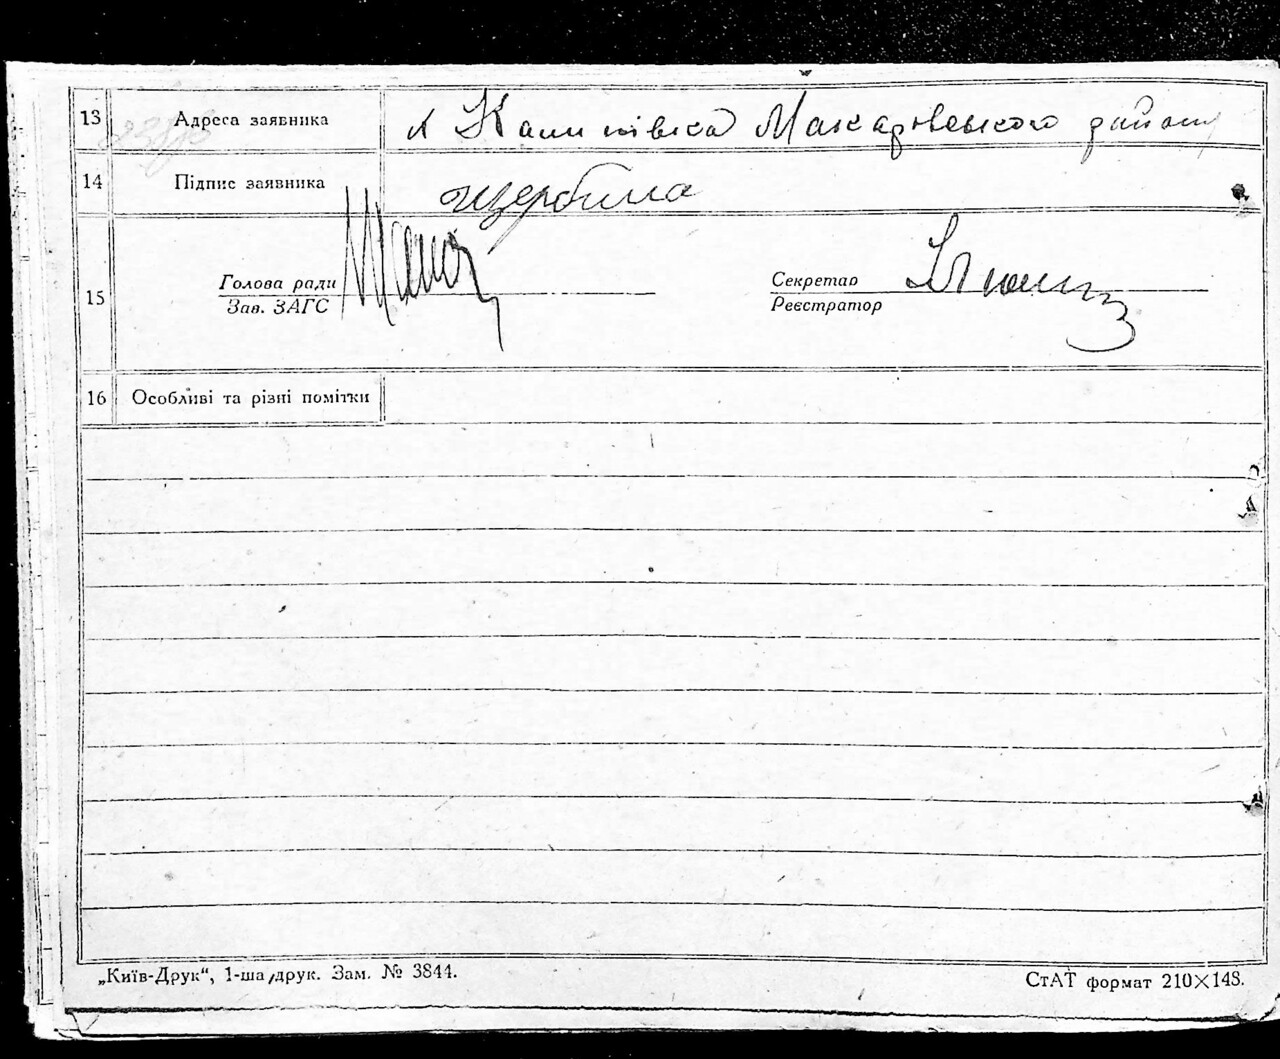 13 Адреса заявника Макарівського району
14 Підпис заявника Щербина
15 Голова ради Секретар
Зав. ЗАГС Реєстратор
16 Особливі та різні помітки
„Київ-Друк“, 1-ша друк. Зам. № 3844. СтАТ формат 210×148.